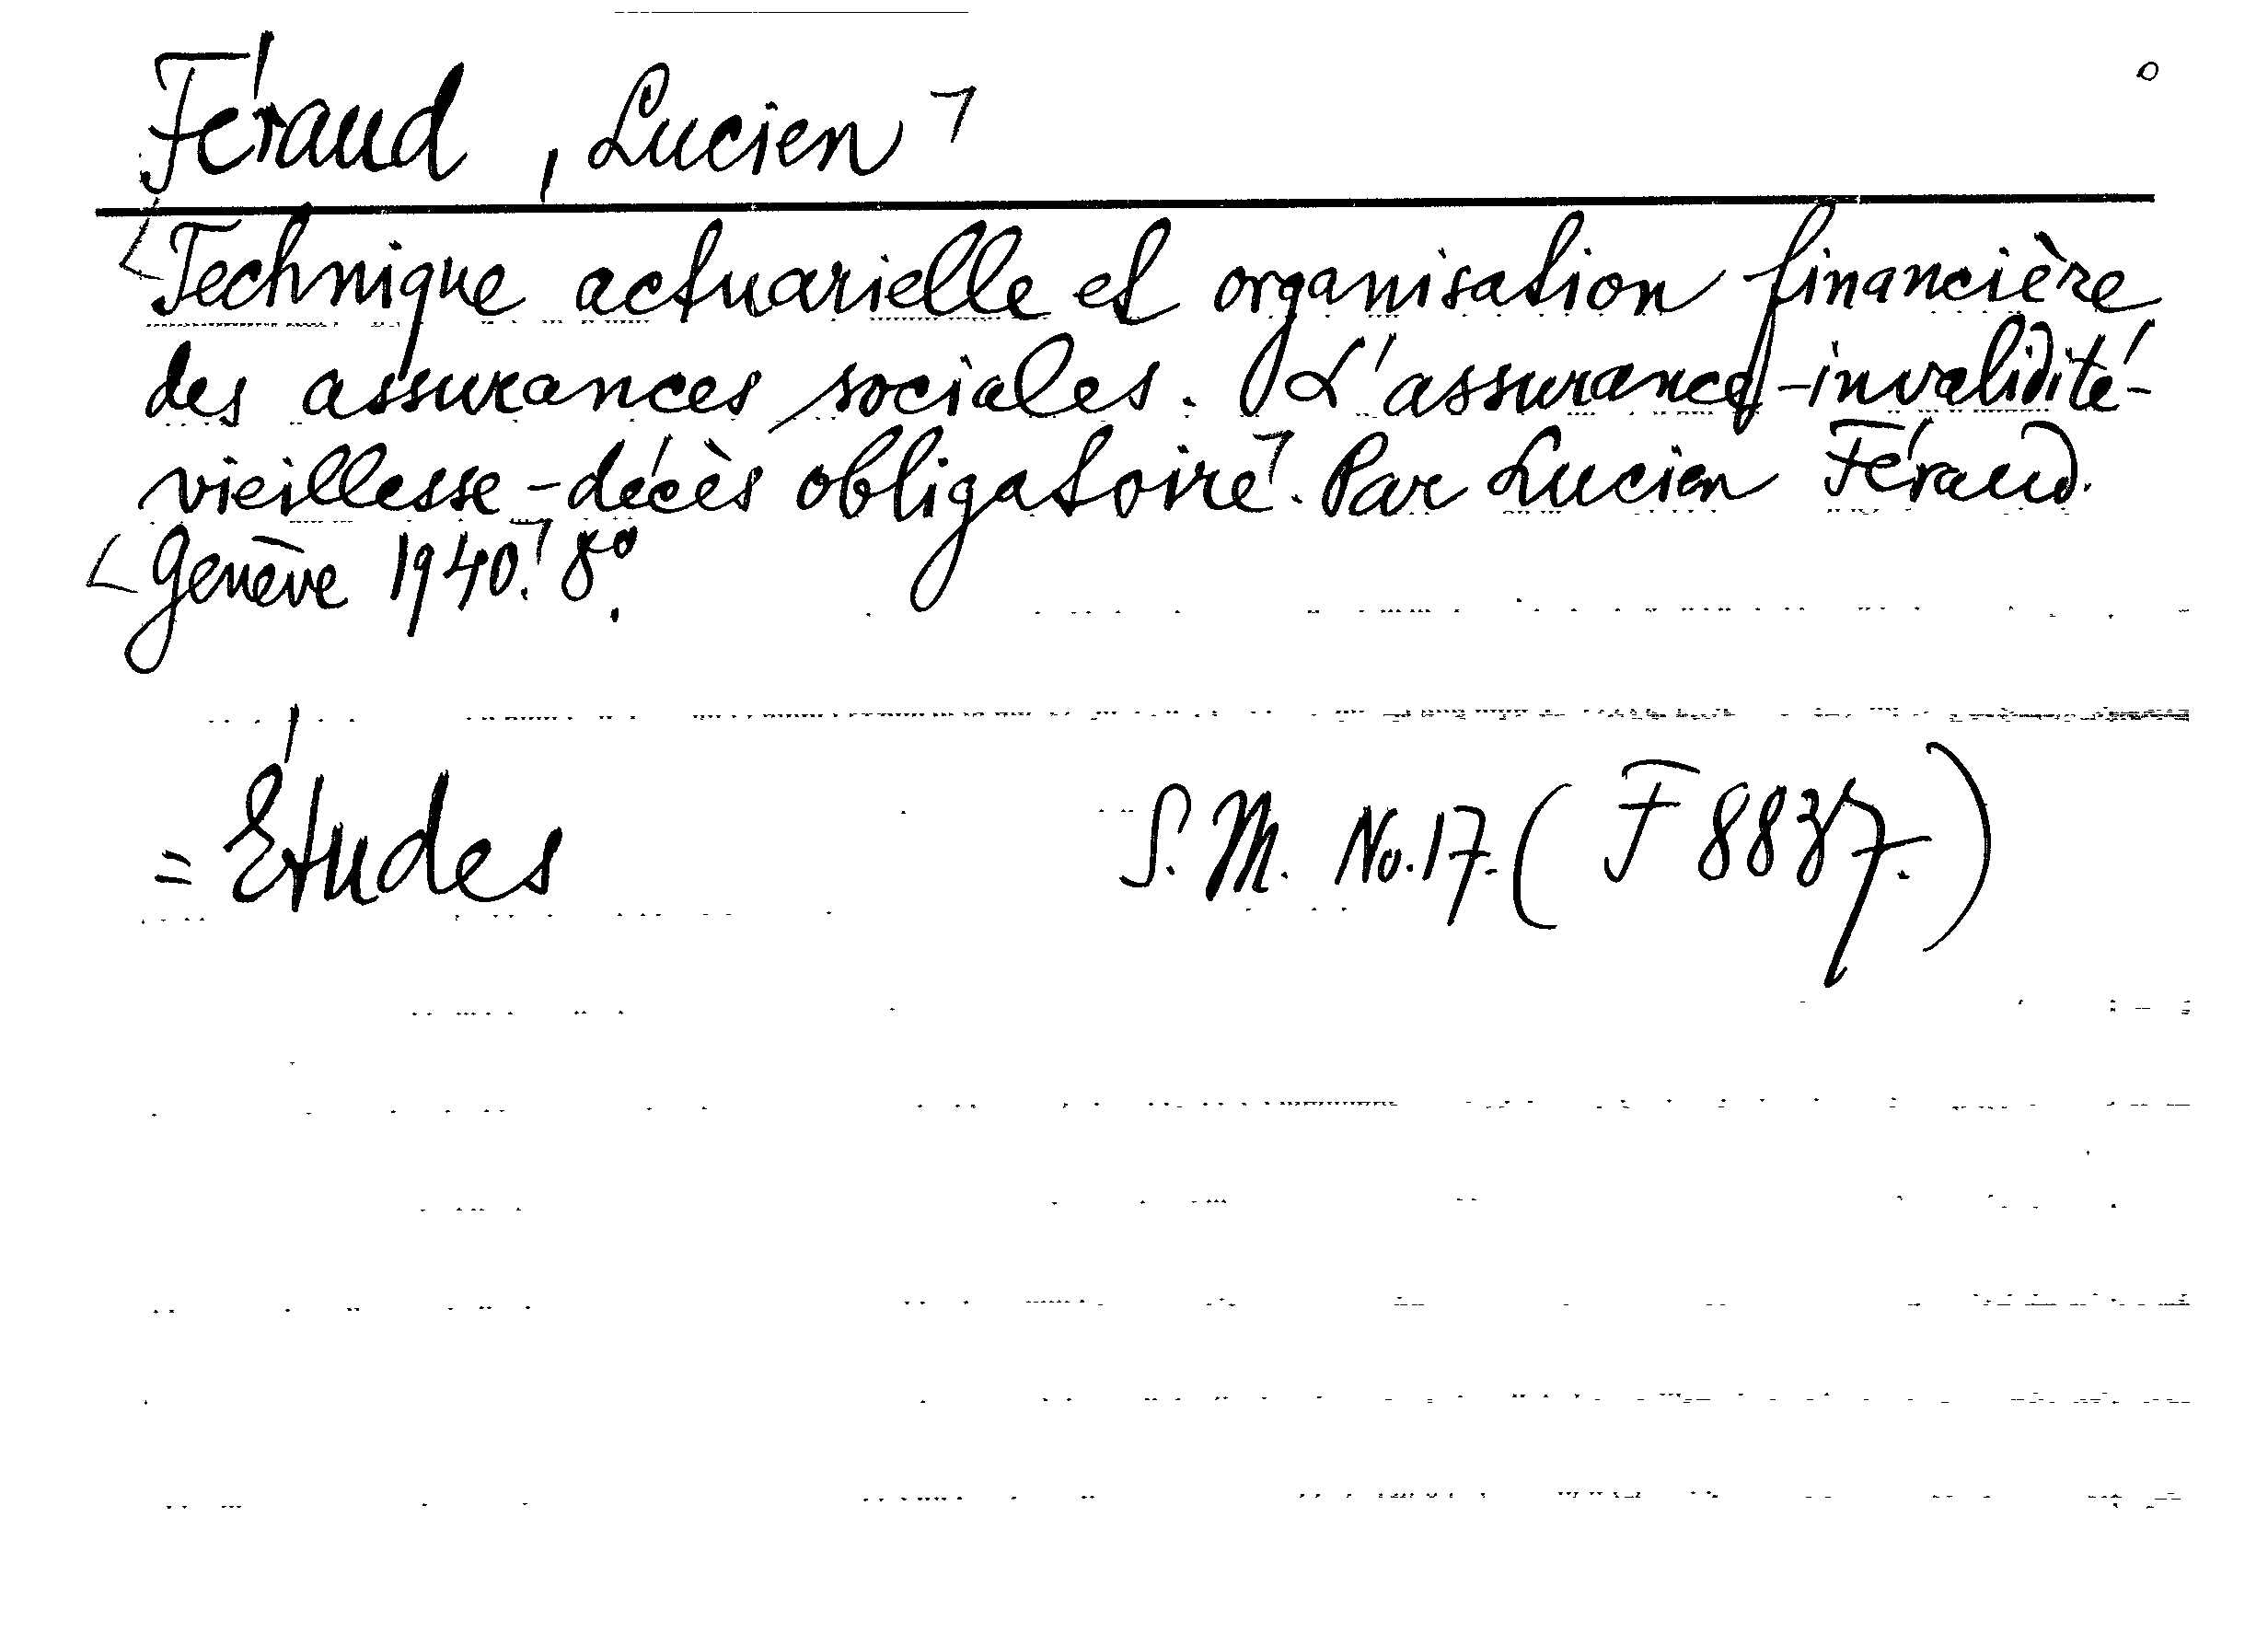 Féraud, Lucien
Technique actuarielle et organisation financière
des assurances sociales. L'assurance-invalidité-
vieillesse-décès obligatoire. Par Lucien Féraud.
Genève 1940. 8º.
= Études S. M. No. 17. (F 8837.)